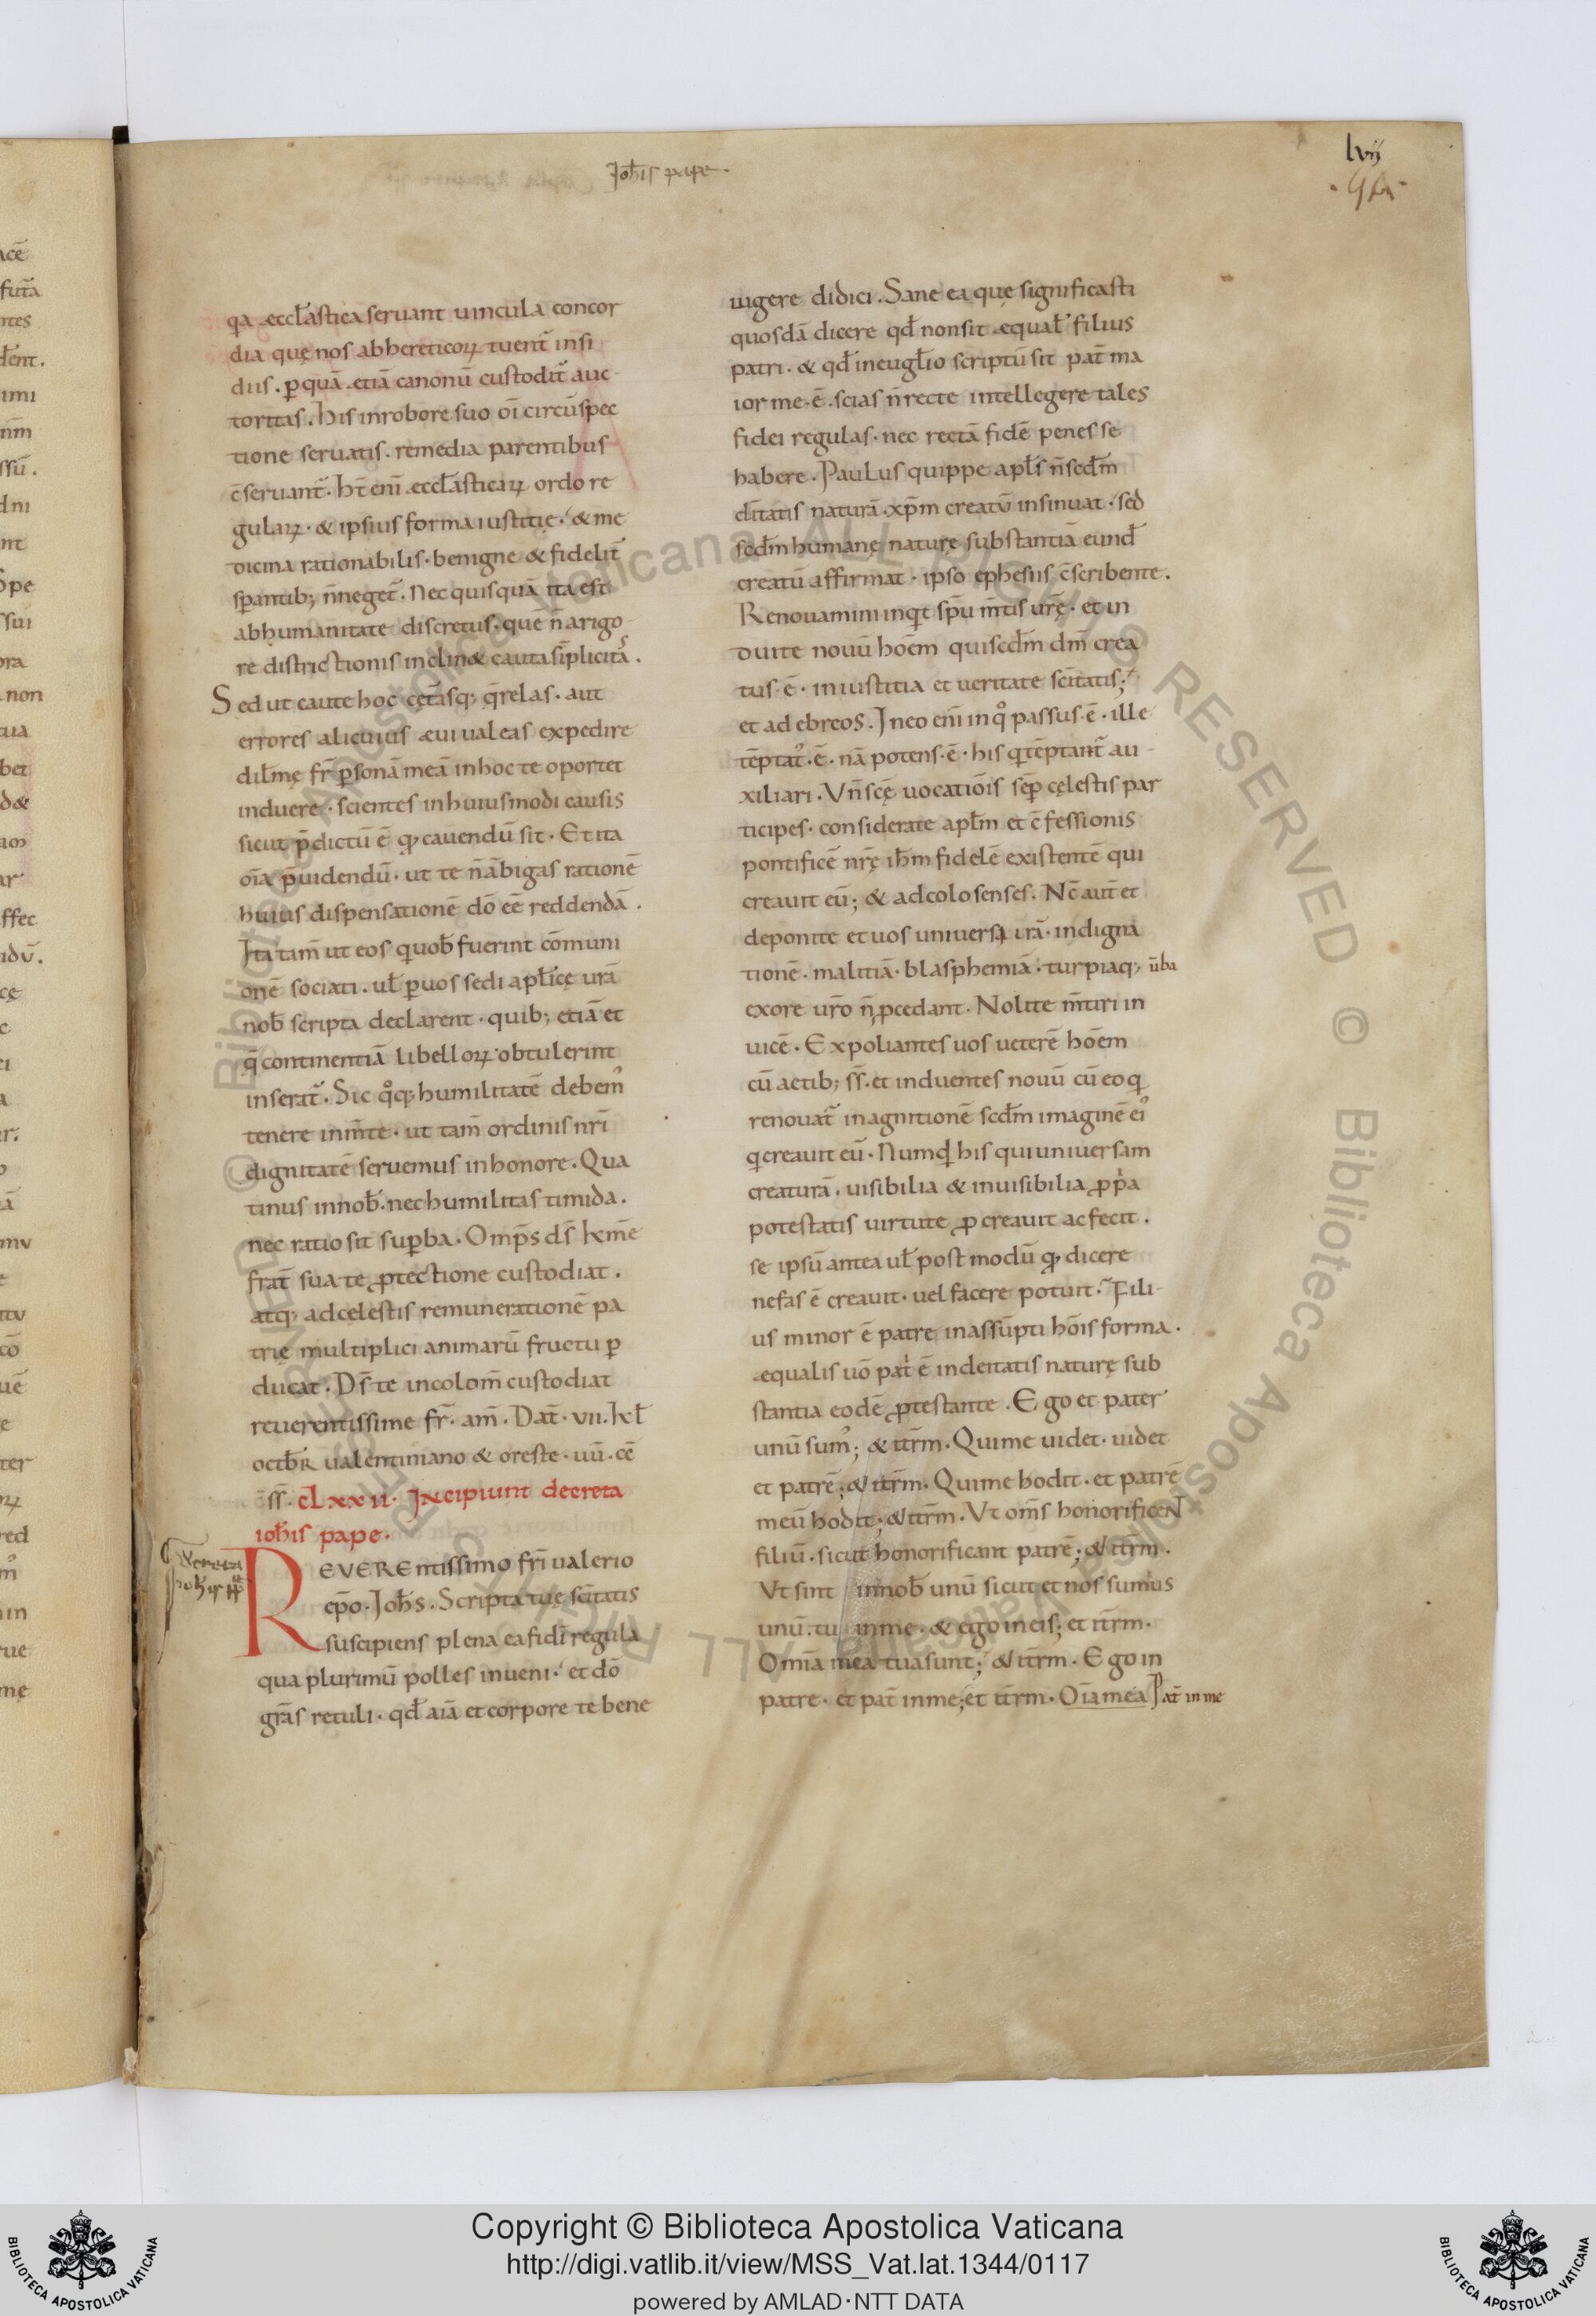 Ioħis pape.
lvij
qa æccƚastica seruant uincula concor
dia quę nos abhereticoꝝ tuent̄ insi
diis. ꝑquā etiā canonū custodit̄ auc
toritas. his inrobore suo oı̄ circūspec
tione seruatis. remedia parentibus
c̄seruant̄. ht̄ eni æccƚasticaꝝ ordo re
gulaꝝ. & ipsius forma iustitię. & me
dicina rationabilis. benigne & fidelit̄
sꝑantib; n̄neget̄. Nec quisquā ita est
abhumanitate discretus. quē n̄ arigo
re districtionis inclin& cauta sı̄plicitās.
Sed ut caute hoc cętasq; q̄relas. aut
errores alicuius æui ualeas expedire
dilm̄ę fr̄ ꝑsonā meā inhoc te oportet
induere. scientes inhuiusmodi causis
sicut p̄dictū ē qđ cauendū sit. Et ita
oı̄a p̄uidendū. ut te n̄ābigas rationē
huius dispensationē dō eē reddendā.
Ita tam̄ ut eos quoƀ fuerint cōmuni
onē sociati. uƚ ꝑuos sedi apƚicę urā
noƀ scripta declarent. quib; etiā et
q̄ continentiā libelloꝝ obtulerint
inserat̄. Sic qͦq; humilitatē debem᾽
tenere inm̄te. ut tam̄ ordinis nr̄i
dignitatē seruemus inhonore. Qua
tinus innoƀ. nec humilitas timida.
nec ratio sit suꝑba. Omp̄s ds̄ kme
frat̄ sua te ꝓtectione custodiat.
atq; adcęlestis remunerationē pa
trię multiplici animarū fructu ꝑ
ducat. Ds̄ te incolom̄ custodiat
reuerentissime fr̄. am̄. Dat̄. vii. kƚ
octƀR ualentiniano & oreste. uū. cē
s̄s̄. cLxxii. Incipiunt decreta
ioħis pape.
decreta
ioħis pp̄
REVERENtissimo fr̄i ualerio
ep̄o. Joħs. Scripta tuę sc̄itatis
suscipiens plena ea fidı̄ regula
qua plurimū polles inueni. et dō
grā̄s retuli. qđ aı̄a et corpore te bene
uigere didici. Sane ea quę significasti
quosdā dicere qđ nonsit æqual᾽ filius
patri. & qđ ineugƚio scriptū sit pat̄ ma
ior me. ē. scias n̄recte intellegere tales
fidei regulas. nec rectā fidē penes se
habere. Paulus quippe apƚs n̄sed̄m
dı̄tatis naturā. xp̄m creatū insinuat. sed
scd̄m humanę naturę substantiā eunđ
creatū affirmat. ipso ephesiis c̄scribente.
Renouamini inqt sp̄u m̄tis urę̄. et in
duite nouū hoēm quiscd̄m dm̄ crea
tus. ē. iniustitia et ueritate sc̄itatis;
et ad ebreos. Ineo enı̄ inqͦ passus. ē. ille
tēptat᾽. ē. nā potens. ē. his qtēptant̄ au
xiliari. Vn̄ scę̄ uocatiōis sēꝑ cęlestis par
ticipes. considerate apƚm et c̄fessionis
pontificē nrę̄ iħm fidelē existentē qui
creauit eū; & adcolosenses. Nc̄ aut̄ et
deponite et uos uniuersa irā. indigna
tionē. malitiā. blasphemiā. turpiaq; ūba
exore uro n̄ ꝓcedant. Nolite m̄tiri in
uicē. Expoliantes uos ueterē hoēm
cū actib; s̄s̄. et induentes nouū cū eo q
renouat̄ inagnitionē scd̄m imaginē ei᾽
qcreauit eū. Numqđ his quiuniuersam
creaturā. uisibilia & inuisibilia ꝓp̄a
potestatis uirtute ꝓcreauit ac fecit.
se ipsū antea uƚ post modū qđ dicere
nefas ē creauit. uel facere potuit. Fili
us minor ē patre inassūpti hōis forma.
æqualis uō pat̄ ē indeitatis naturę sub
stantia eodē ꝓtestante. Ego et pater
unū sum᾽; & itr̄m. Quime uidet. uidet
et patrē; & itr̄m. Quime hodit. et patrē
meū hodit; & itr̄m. Vt oms̄ honorificeN
filiū. sicut honorificant patrē; & itr̄m.
Vt sint innoƀ unū sicut et nos sumus
unū. tu inme. & ego ineis; et itr̄m.
Omı̄a mea tua sunt; & itr̄m. Ego in
patre. et pat̄ inme; et itr̄m. Oı̄a mea Pat̄ in me
© Biblioteca Apostolica Vaticana ALL RIGHTS RESERVED © Biblioteca Apostolica Vaticana ALL RIGHTS RESERVED
Copyright © Biblioteca Apostolica Vaticana
http://digi.vatlib.it/view/MSS_Vat.lat.1344/0117
powered by AMLAD·NTT DATA
BIBLIOTECA APOSTOLICA VATICANA
BIBLIOTECA APOSTOLICA VATICANA